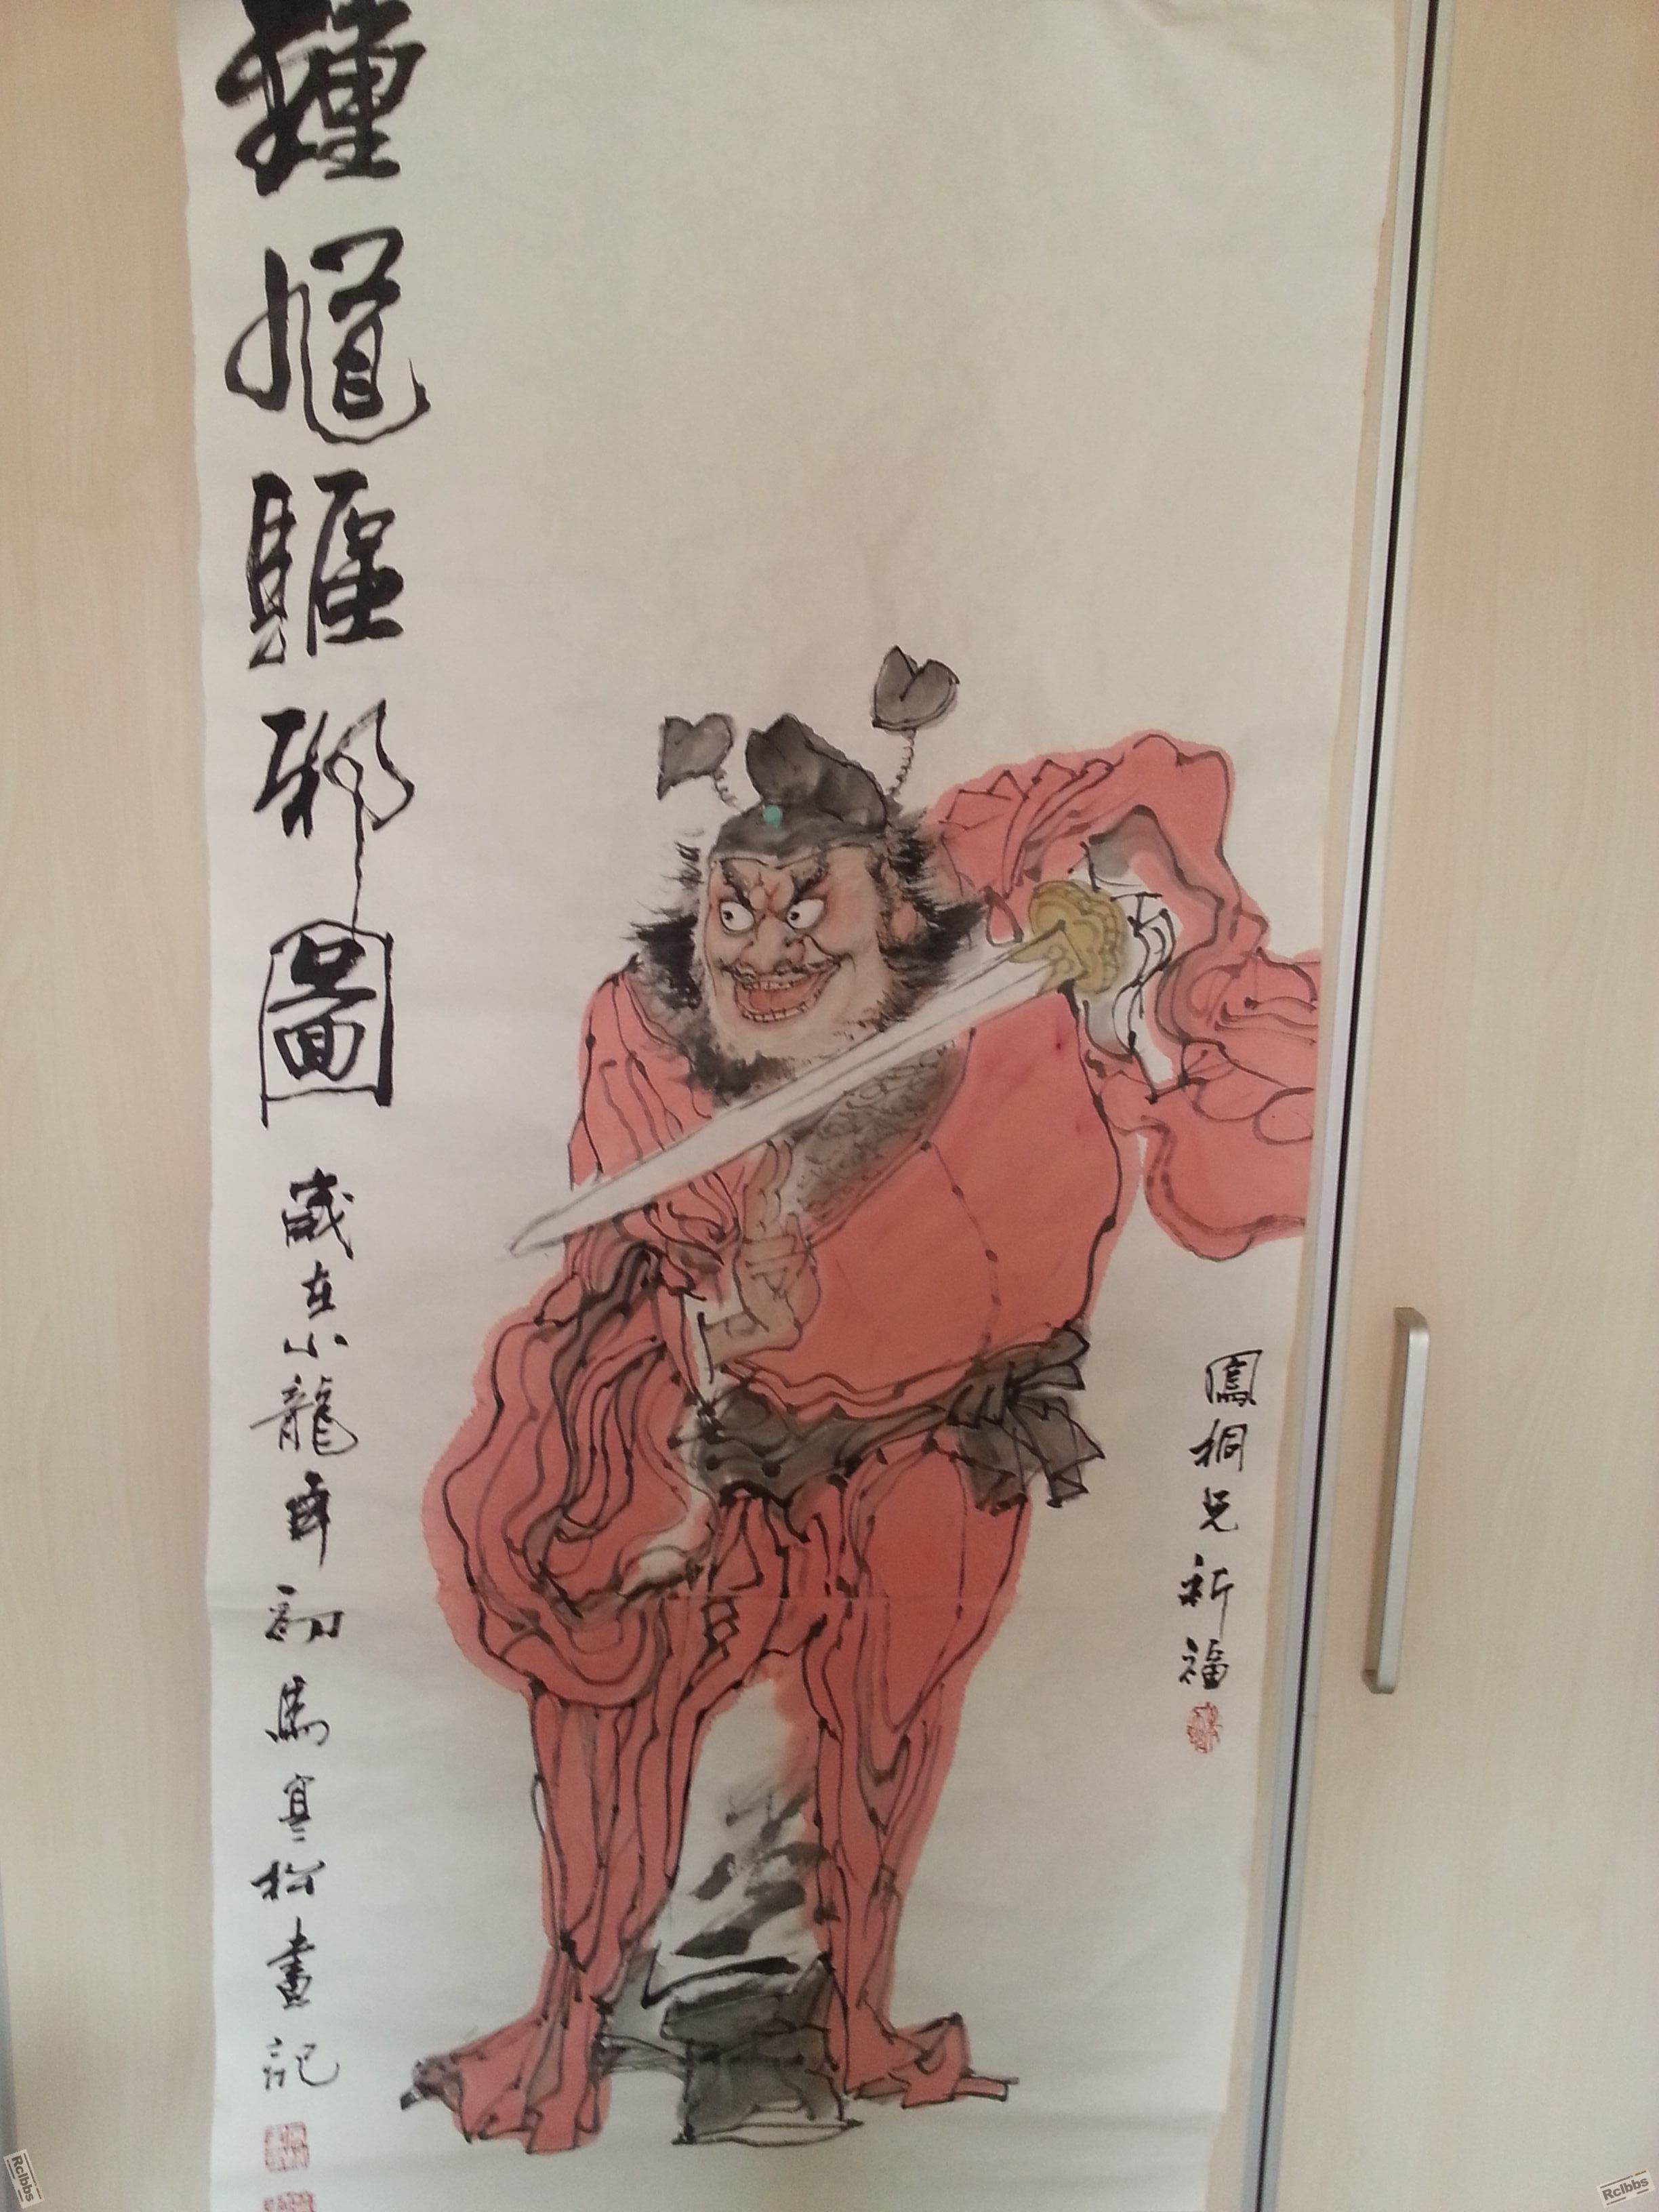 鳳桐兄祈福
鍾馗驅邪圖
歲在小龍年初馬寒松畫記
Rclbbs
Rclbbs